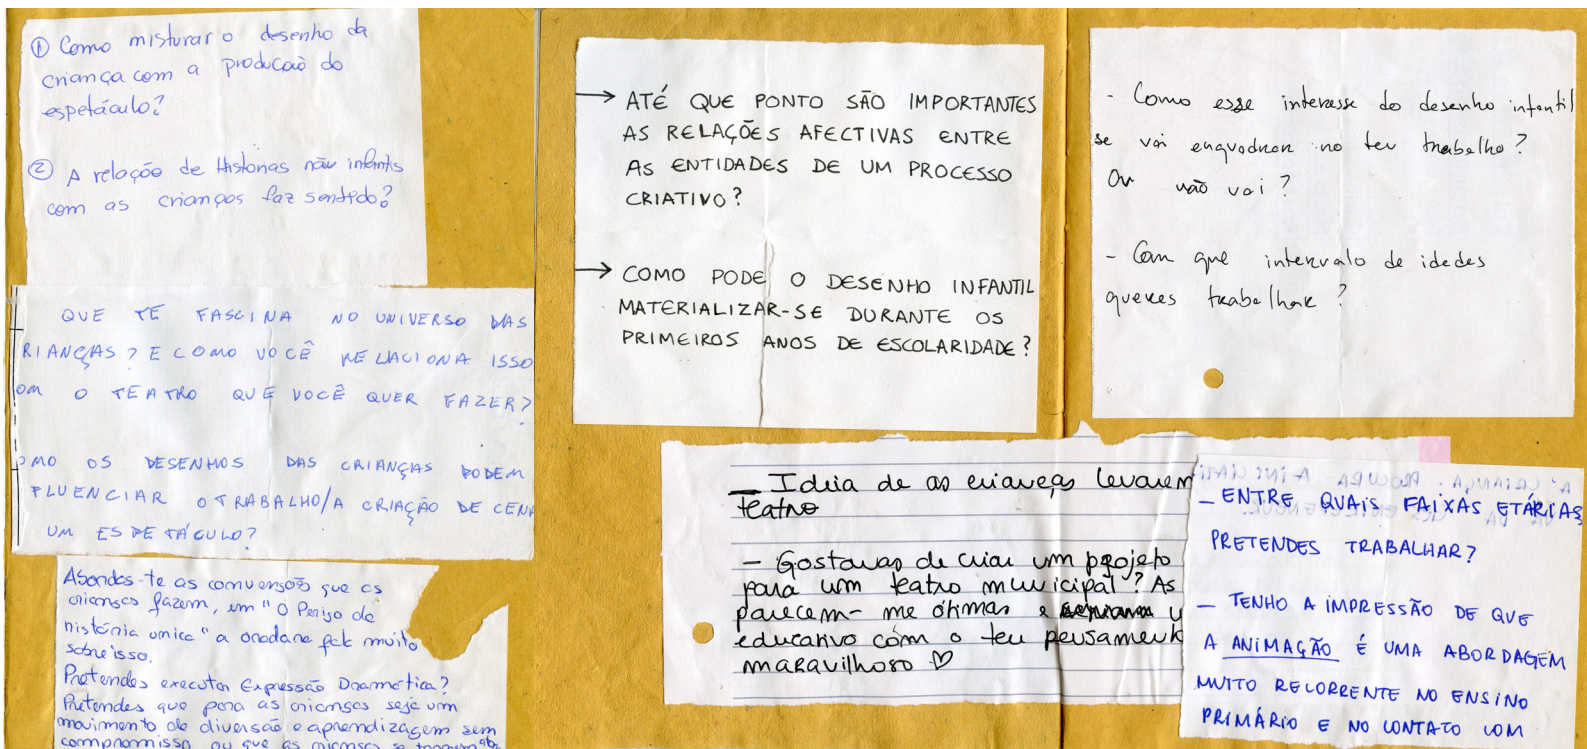 ① Como misturar o desenho da
criança com a producaò do
espetáculo?
② A relação de Historias não infantis
com as crianças faz sentido?
QUE TE FASCINA NO UNIVERSO DAS
RIANÇAS? E COMO VOCÊ RELACIONA ISSO
OM O TEATRO QUE VOCÊ QUER FAZER?
OMO OS DESENHOS DAS CRIANÇAS PODEM
FLUENCIAR O TRABALHO/A CRIAÇÃO DE CENA
UM ESPETÁCULO?
as convenções que as
crianças fazem, em "O Perigo da
história unica" a fala muito
sobre isso.
Pretendes executar Expressão Dramática?
Pretendes que para as crianças seja um
movimento de diversão e aprendizagem sem
compromisso ou que as crianças se tornem
→ ATÉ QUE PONTO SÃO IMPORTANTES
AS RELAÇÕES AFECTIVAS ENTRE
AS ENTIDADES DE UM PROCESSO
CRIATIVO?
→ COMO PODE O DESENHO INFANTIL
MATERIALIZAR-SE DURANTE OS
PRIMEIROS ANOS DE ESCOLARIDADE?
- Como esse interesse do desenho infantil
se vai enquadrar no teu trabalho?
Ou não vai?
- Com que intervalo de idades
queres trabalhar?
- Ideia de as crianças levarem
teatro
- Gostavas de criar um projeto
para um teatro municipal? As
parecem-me ótimas e
educativo com o teu pensament
maravilhoso ♡
- ENTRE QUAIS FAIXAS ETÁRIAS
PRETENDES TRABALHAR?
- TENHO A IMPRESSÃO DE QUE
A ANIMAÇÃO É UMA ABORDAGEM
MUITO RECORRENTE NO ENSINO
PRIMÁRIO E NO CONTATO COM